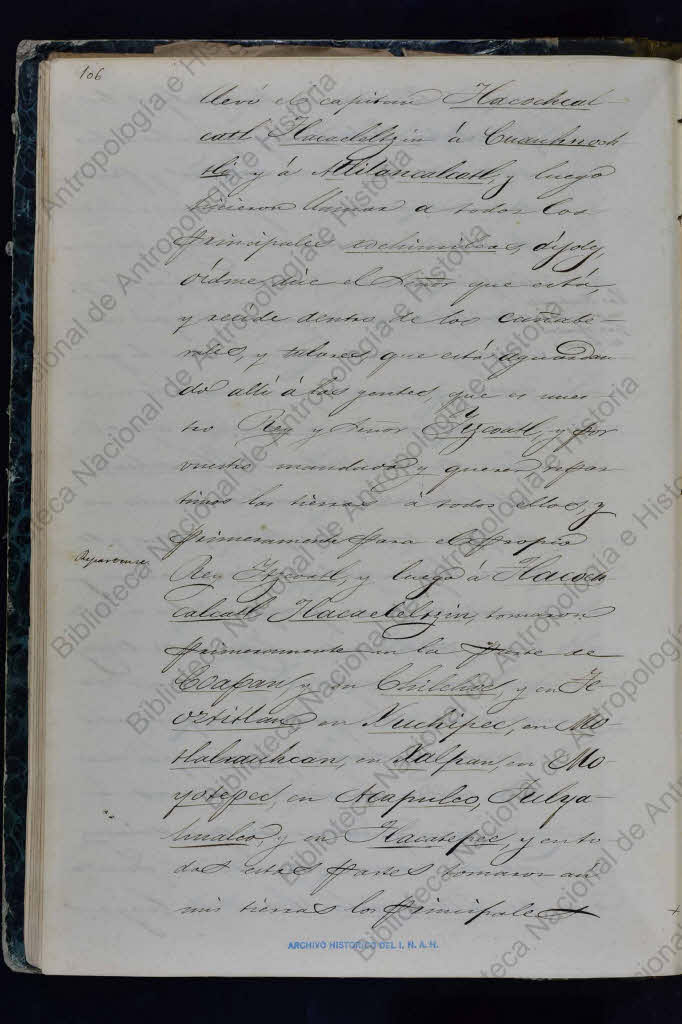 106
llevó el capitan Tlacochcal-
catl Tlacaeleltzin á Cuauhnoch
tli y á Tlilancalcatl, y luego
hicieron llamar a todos los
principales xochimilcas, díjoles,
oidme, dice el Señor que está,
y recide dentro de los cañabe-
rales, y tulares que está aguardan
do allí á las gentes, que es nues-
tro Rey y Señor Itzcoatl, y por
vuestro mandado y querer repar
timos las tierras á todos ellos, y
primeramente para el propio
Repartense
Rey Itzcoatl, y luego á Tlacoch
calcatl Tlacaeleltzin, tomaron
primeramente en la parte de
Coapan, y en Chilchoc, y en Te
oztitlan, en Xuchipec, en Mo-
tlalxauhcan, en Xalpan, en Mo-
yotepec, en Acapulco, Tulya-
hualco, y en Tlacatepec, y en to-
das estas partes tomaron aú
mis tierras los principales
ARCHIVO HISTORICO DEL I. N. A. H.
Biblioteca Nacional de Antropología e Historia